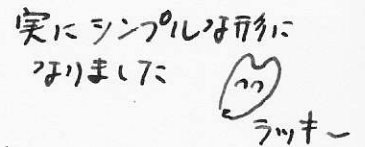 実にシンプルな形に
なりました
ラッキー